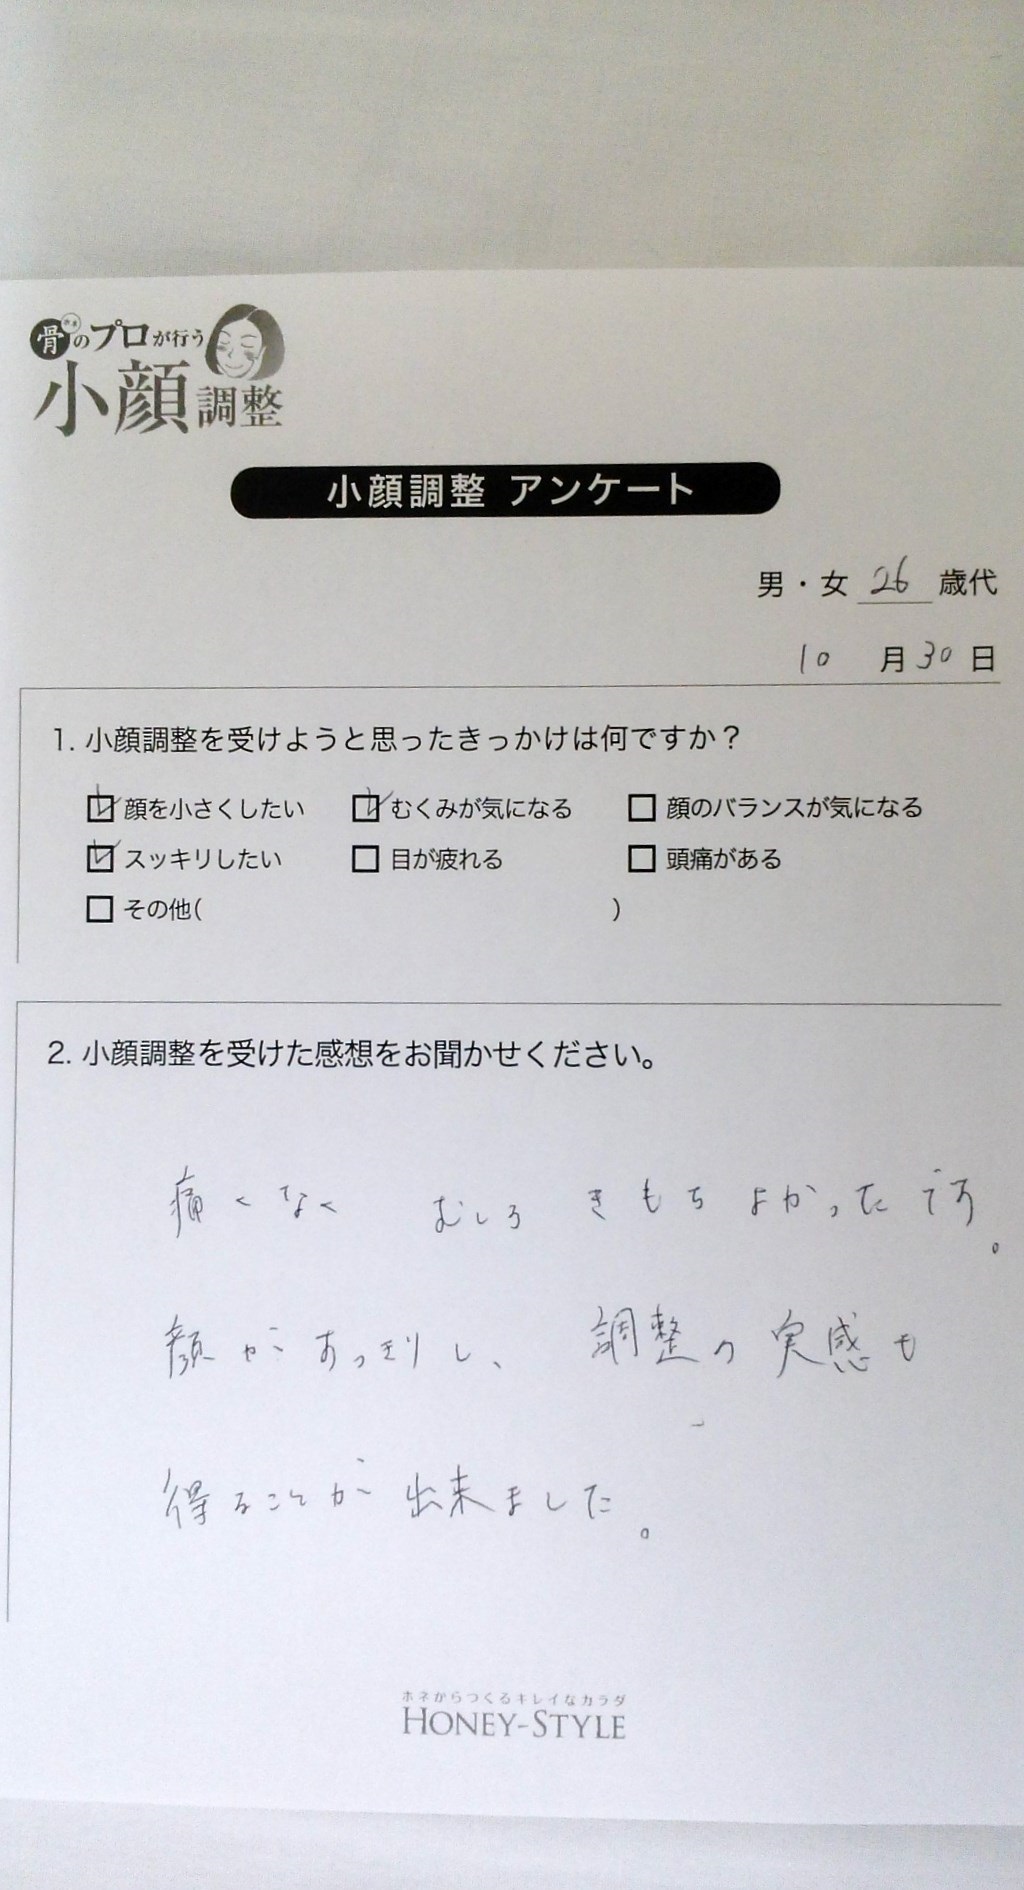 骨のプロが行う
小顔調整
小顔調整 アンケート
男・女 26 歳代
10 月 30 日
1. 小顔調整を受けようと思ったきっかけは何ですか？
☑ 顔を小さくしたい ☑ むくみが気になる □ 顔のバランスが気になる
☑ スッキリしたい □ 目が疲れる □ 頭痛がある
□ その他( )
2. 小顔調整を受けた感想をお聞かせください。
痛くなく むしろ きもちよかったです。
顔がすっきりし、 調整の実感も
得ることが出来ました。
ホネからつくるキレイなカラダ
HONEY-STYLE